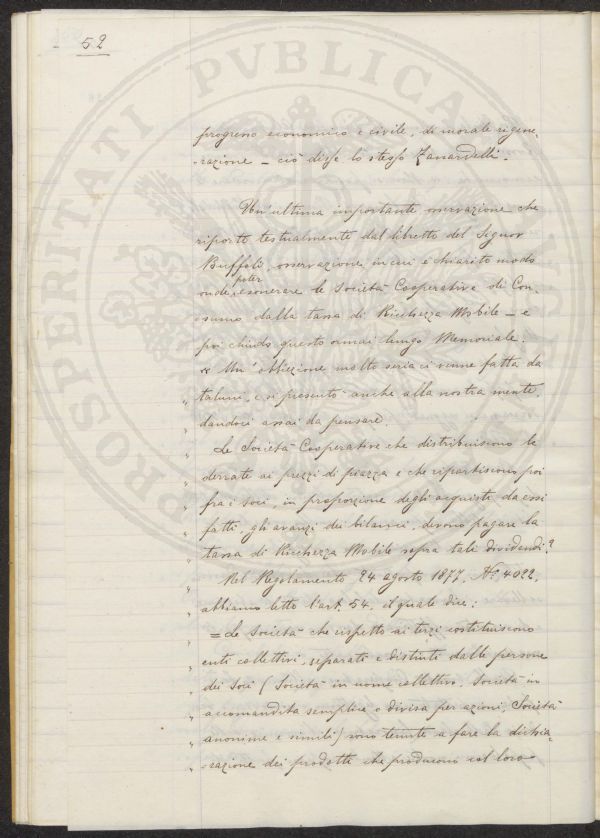 52
progresso economico e civile, di morale rigene-
razione – ciò disse lo stesso Zanardelli.
Un'ultima importante osservazione che
riporto testualmente dal libretto del Signor
Buffoli, osservazione in cui è chiarito modo
poter
onde esonerare le Società Cooperative di Con-
sumo dalla tassa di Ricchezza Mobile – e
poi chiudo questo ormai lungo Memoriale.
« Un'obbiezione molto seria ci venne fatta da
„ taluni, e si presentò anche alla nostra mente,
„ dandoci assai da pensare.
„ Le Società Cooperative che distribuiscono le
„ derrate ai prezzi di piazza e che ripartiscono poi
„ fra i soci, in proporzione degli acquisti da essi
„ fatti, gli avanzi dei bilanci, devono pagare la
„ tassa di Ricchezza Mobile sopra tali dividendi?
„ Nel Regolamento 24 agosto 1877, N.° 4022,
„ abbiamo letto l'art. 54, il quale dice:
„ = Le Società che rispetto ai terzi costituiscono
„ enti collettivi, separati e distinti dalle persone
„ dei Soci (Società in nome collettivo, Società in
„ accomandita semplice o divisa per azioni, Società
„ anonime e simili) sono tenute a fare la dichia-
„ razione dei prodotti che producono col loro
PROSPERITATI PVBLICAE